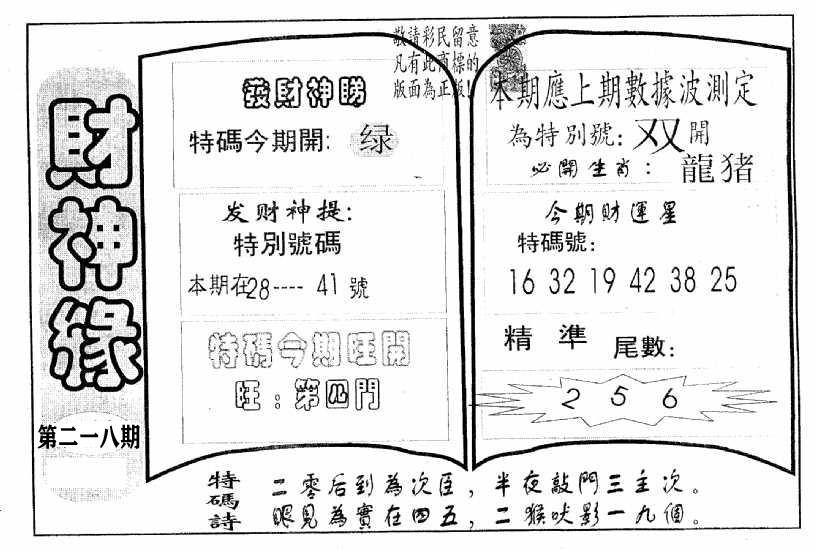 財神緣
第二一八期
敬請彩民留意
凡有此商標的
版面為正版!
發財神睇
特碼今期開: 绿
发财神提:
特別號碼
本期在28---- 41 號
特碼今期旺開
旺:第四門
本期應上期數據波測定
為特別號: 双 開
必開生肖: 龍猪
今期財運星
特碼號:
16 32 19 42 38 25
精 準 尾數:
2 5 6
特碼詩
二零后到為次臣,半夜敲門三主次。
眼見為實在四五,二猴吠影一九個。